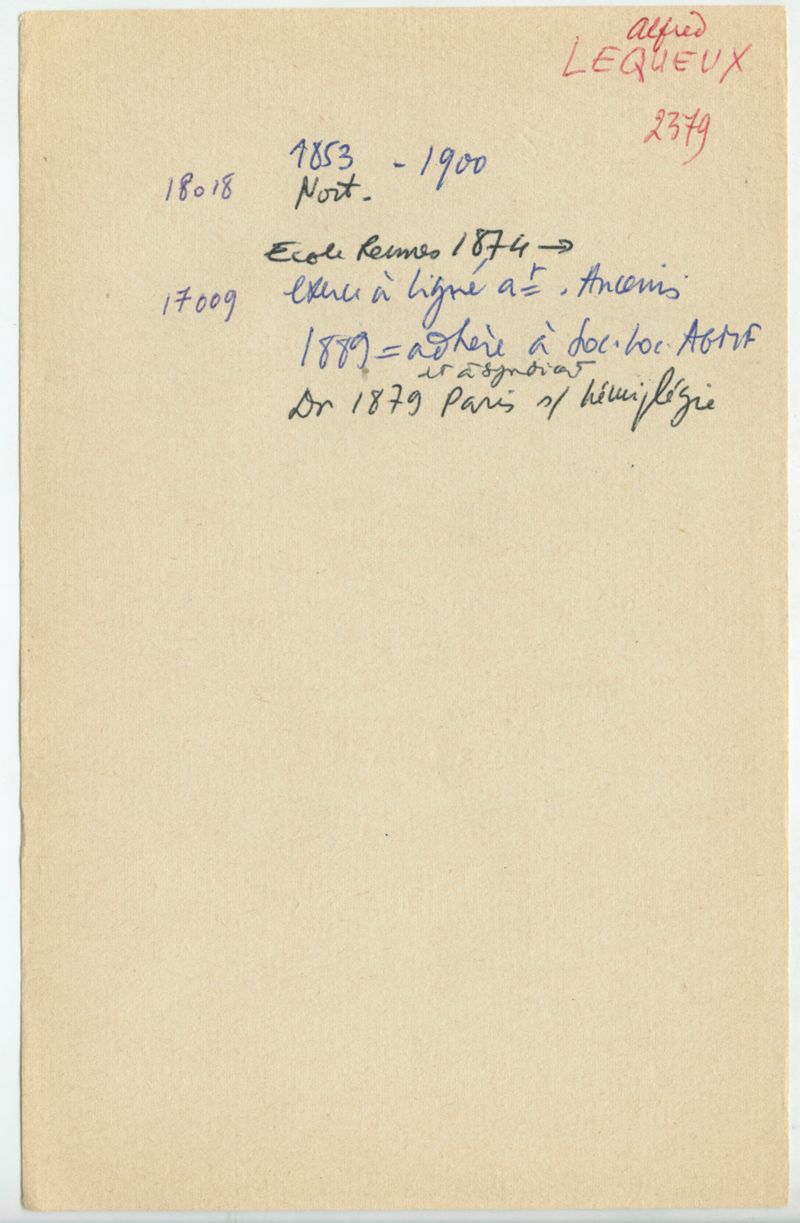 Alfred
LEQUEUX
2379
1853 - 1900
18018 Nort.
Ecole Rennes 1874 →
17009 exerce à Ligné arr. Ancenis
1889 = adhère à Soc. loc. AGMF
et à syndicat
Dr 1879 Paris s/ hémiplégie